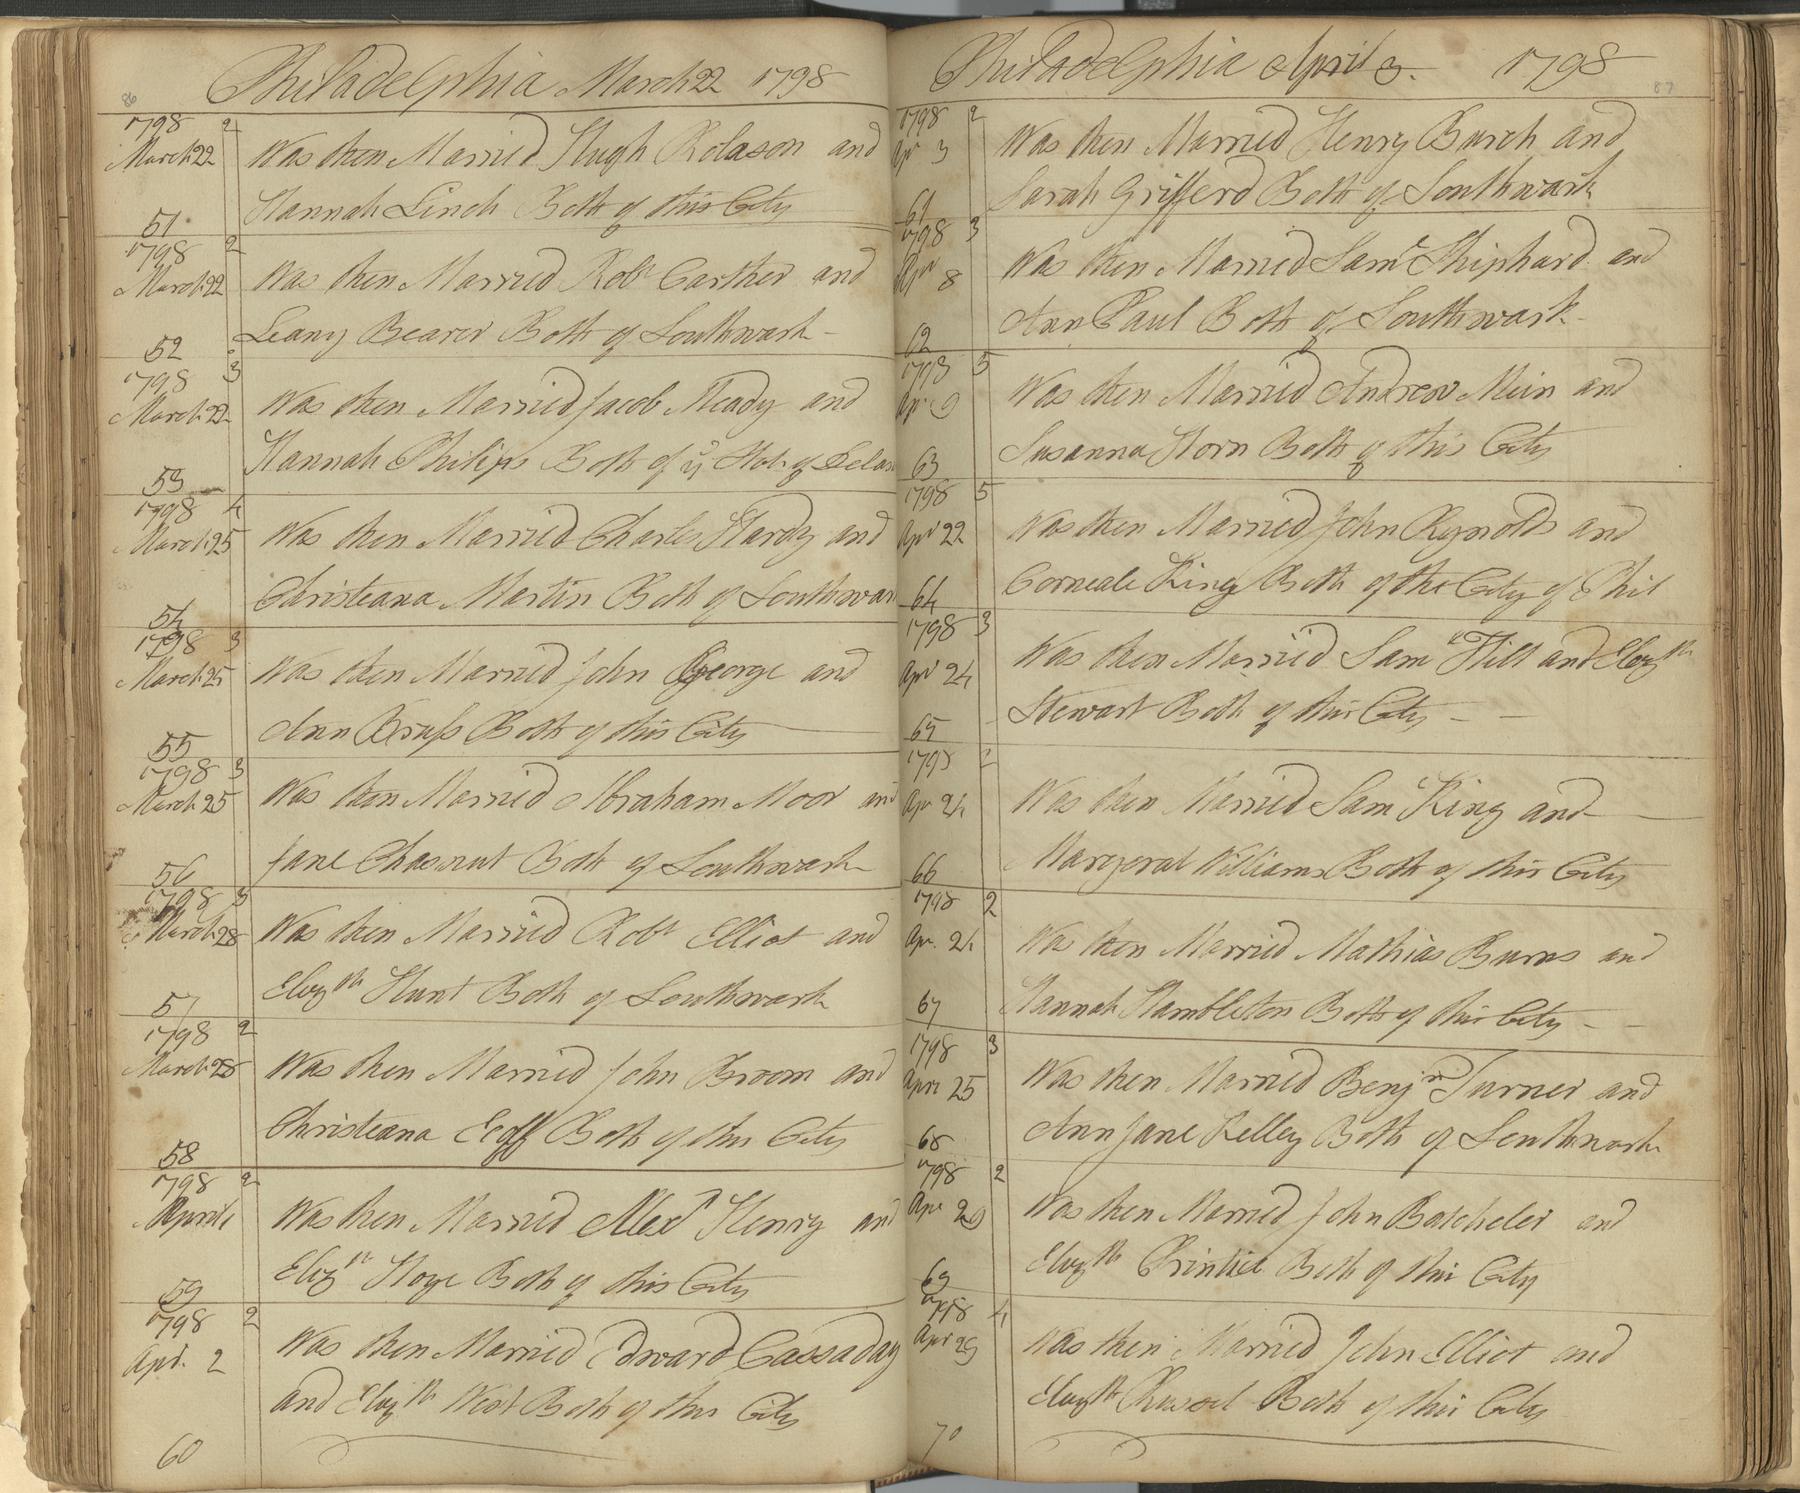 86
Philadelphia March 22 1798
1798 2
March 22 Was then Married Hugh Rolason and
Hannah Linch Both of this City
51
1798 2
March 22 Was then Married Robt Carther and
Leany Bearer Both of Southwark
52
1798 3
March 22 Was then Married Jacob Meady and
Hannah Philips Both of ye State of Delaw
53
1798 4
March 25 Was then Married Charles Hardy and
Christeana Martin Both of Southwark
54
1798 3
March 25 Was then Married John George and
Ann Both of this City
55
1798 3
March 25 Was then Married Abraham Moor and
Jane Chasnut Both of Southwark
56
1798 3
March 28 Was then Married Robt Elliot and
Elizth Hunt Both of Southwark
57
1798 2
March 28 Was then Married John Broom and
Christeana Both of this City
58
1798 2
April 1 Was then Married Alexr Henry and
Elizth Hoge Both of this City
59
1798 2
Apr. 2 Was then Married Edward Cassaday
and Elizth West Both of this City
60
87
Philadelphia April 3 1798
1798 2
Apr 3 Was then Married Henry Burch and
Sarah Grifferd Both of Southwark
61
1798 3
Apr 8 Was then Married Saml Shiphard and
Ann Paul Both of Southwark
62
1798 5
Apr. 9 Was then Married Andrew Mein and
Susanna Horn Both of this City
63
1798 5
Apr 22 Was then Married John Rynolds and
Corneale King Both of the City of Phil
64
1798 3
Apr 24 Was then Married Saml Hill and Elizth
Stewart Both of this City
65
1798 2
Apr 24 Was then Married Sam King and
Margerat Williams Both of this City
66
1798 2
Apr. 24 Was then Married Mathias Burns and
Hannah Hambleton Both of this City
67
1798 3
Apri 25 Was then Married Benjn Turner and
Ann Jane Kelley Both of Southwark
68
1798 2
Apr 29 Was then Married John Batcheler and
Elizth Both of this City
69
1798 4
Apr 29 Was then Married John Elliot and
Elizth Russel Both of this City
70